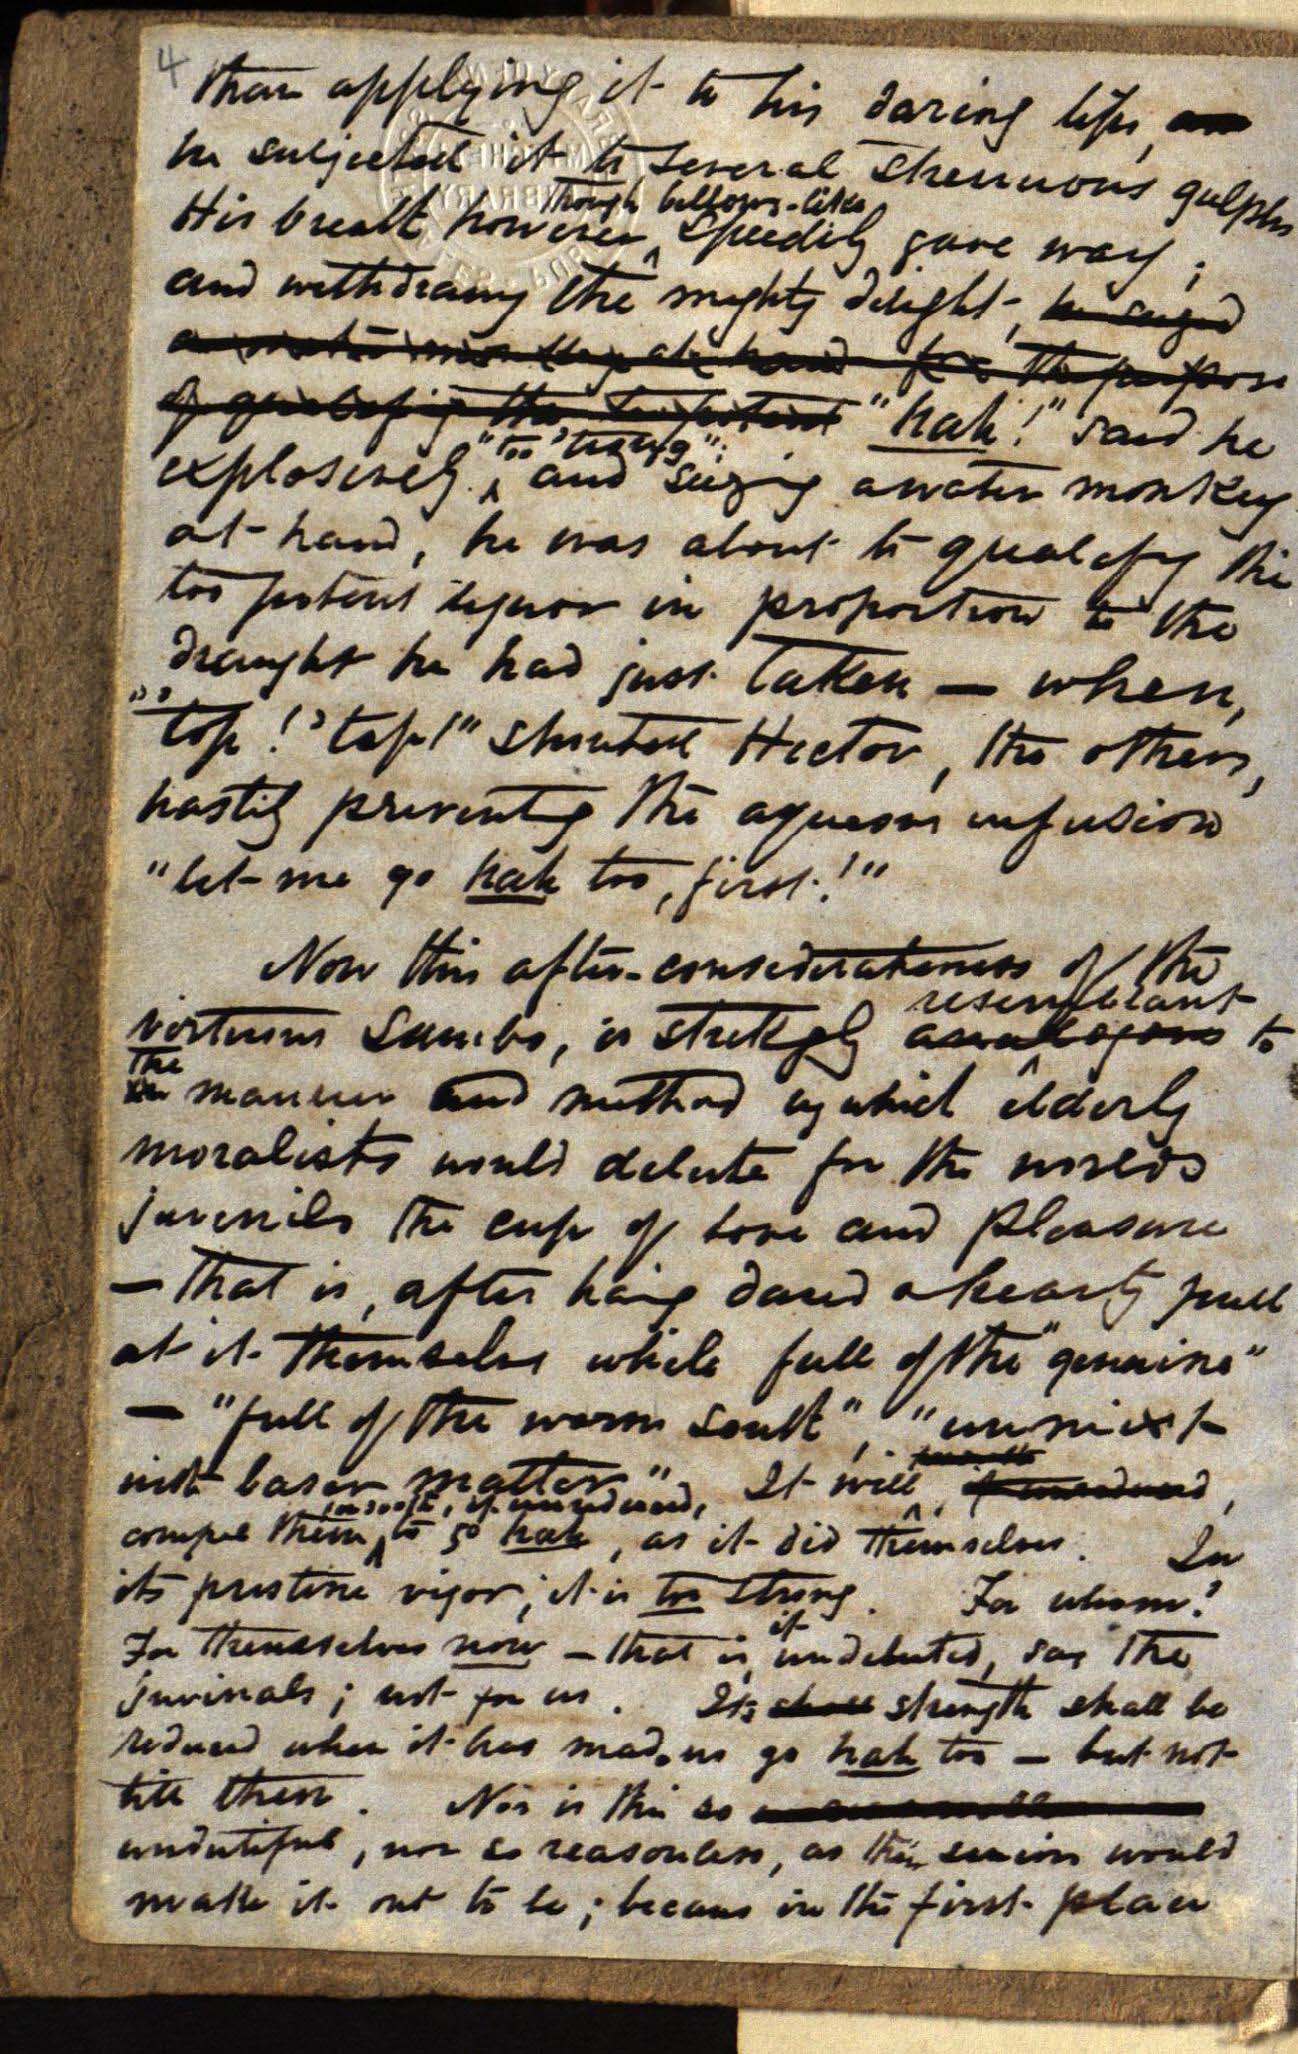 4
than applying it to his daring lips,
he subjected it to several strenuous gulphs
though bellows-like,
His breath however, speedily gave way;
and withdrawing the mighty delight, he seized
a water monkey at hand for the purpose
of qualifying the too potent "hah!" said he
"too 'trong";
explosively, and seizing a water monkey
at hand, he was about to qualify the
too potent liquor in proportion to the
draught he had just taken — when,
"'top! 'top!" shouted Hector, the others,
hastily preventing the aqueous infusion
"let me go hah too, first!"
Now this after-considerateness of the
resemblant
virtuous Sambo, is strikingly analogous to
the
manner and method by which elderly
moralists would delute for the world's
juveniles the cup of love and pleasure
— that is, after having dared a hearty pull
at it themselves while full of the "genuine"
— "full of the warm South", "unmixt
with baser matter". It will, if unreduced,
in sooth, if unreduced,
compel them, to go hah, as it did themselves. In
its pristine vigor, it is too strong. For whom?
it
For themselves now — that is, undeluted, say the
juvenals; not for us. Its strength shall be
reduced when it has made us go hah too — but not
till then. Nor is this so
undutiful, nor so reasonless, as their seniors would
make it out to be; because in the first place